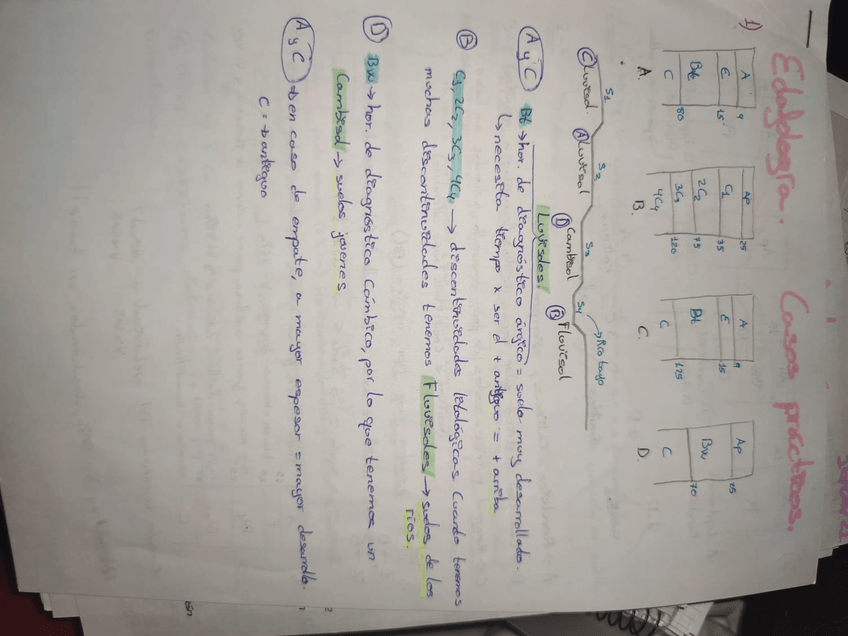 Edafología. Casos prácticos.
1)
A 9
E 15
Bt
C 80
A.
Ap 25
C1 35
2C2 75
3C3
4C4 120
B.
A 9
E 15
Bt
C 125
C.
Ap 25
Bw
C 70
D.
S1 S2 S3 S4 → Río Tajo
C Luvisol. A Luvisol D Cambisol B Fluvisol
Luvisoles
A y C Bt → hor. de diagnóstico árgico = suelo muy desarrollado.
↳ necesita tiempo x ser d + antiguo = + arriba
B C1, 2C2, 3C3, 4C4 → discontinuidades litologicas Cuando tenemos
muchas discontinuidades tenemos Fluvisoles → suelos de los
ríos.
D Bw → hor. de diagnóstico Cámbico, por lo que tenemos un
Cambisol → suelos jóvenes.
A y C → en caso de empate, a mayor espesor = mayor desarrollo.
C = + antiguo